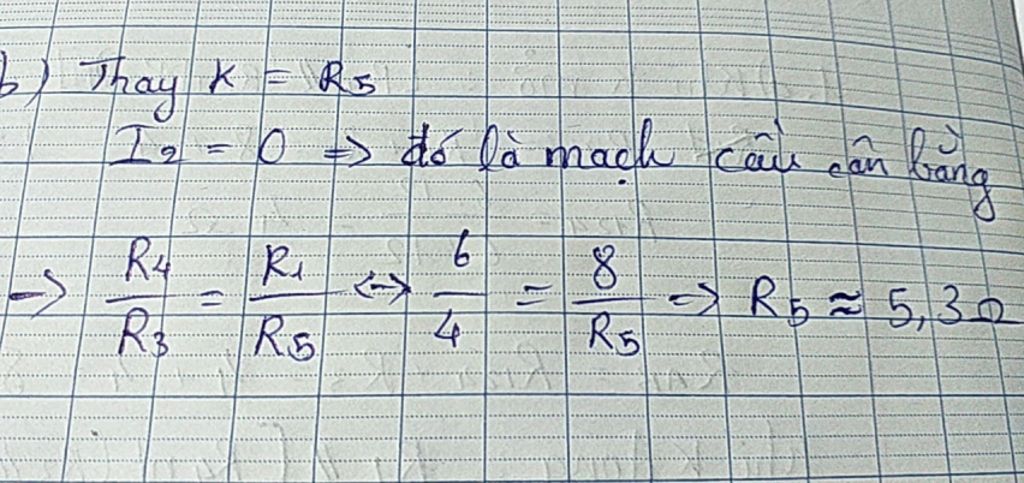 b) Thay K = R5
I2 = 0 => đó là mạch cầu cân bằng
-> R4/R3 = R1/R5 <-> 6/4 = 8/R5 => R5 ≈ 5,3Ω